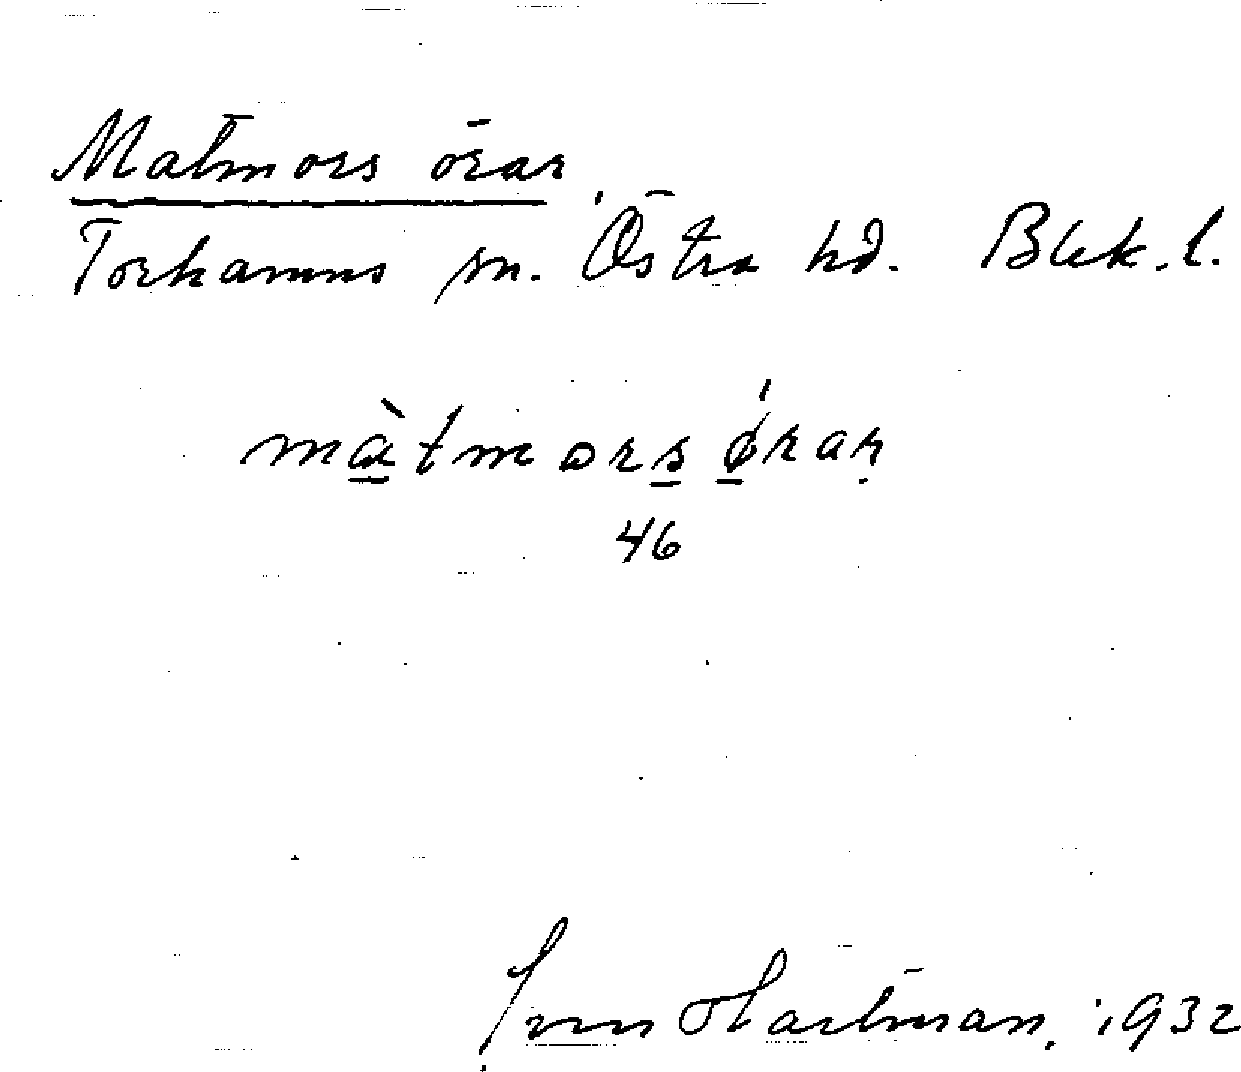 Matmors örar
Torhamns sn. Östra hd. Blek. l.
màtmors ǿrar
46
Hartman, 1932